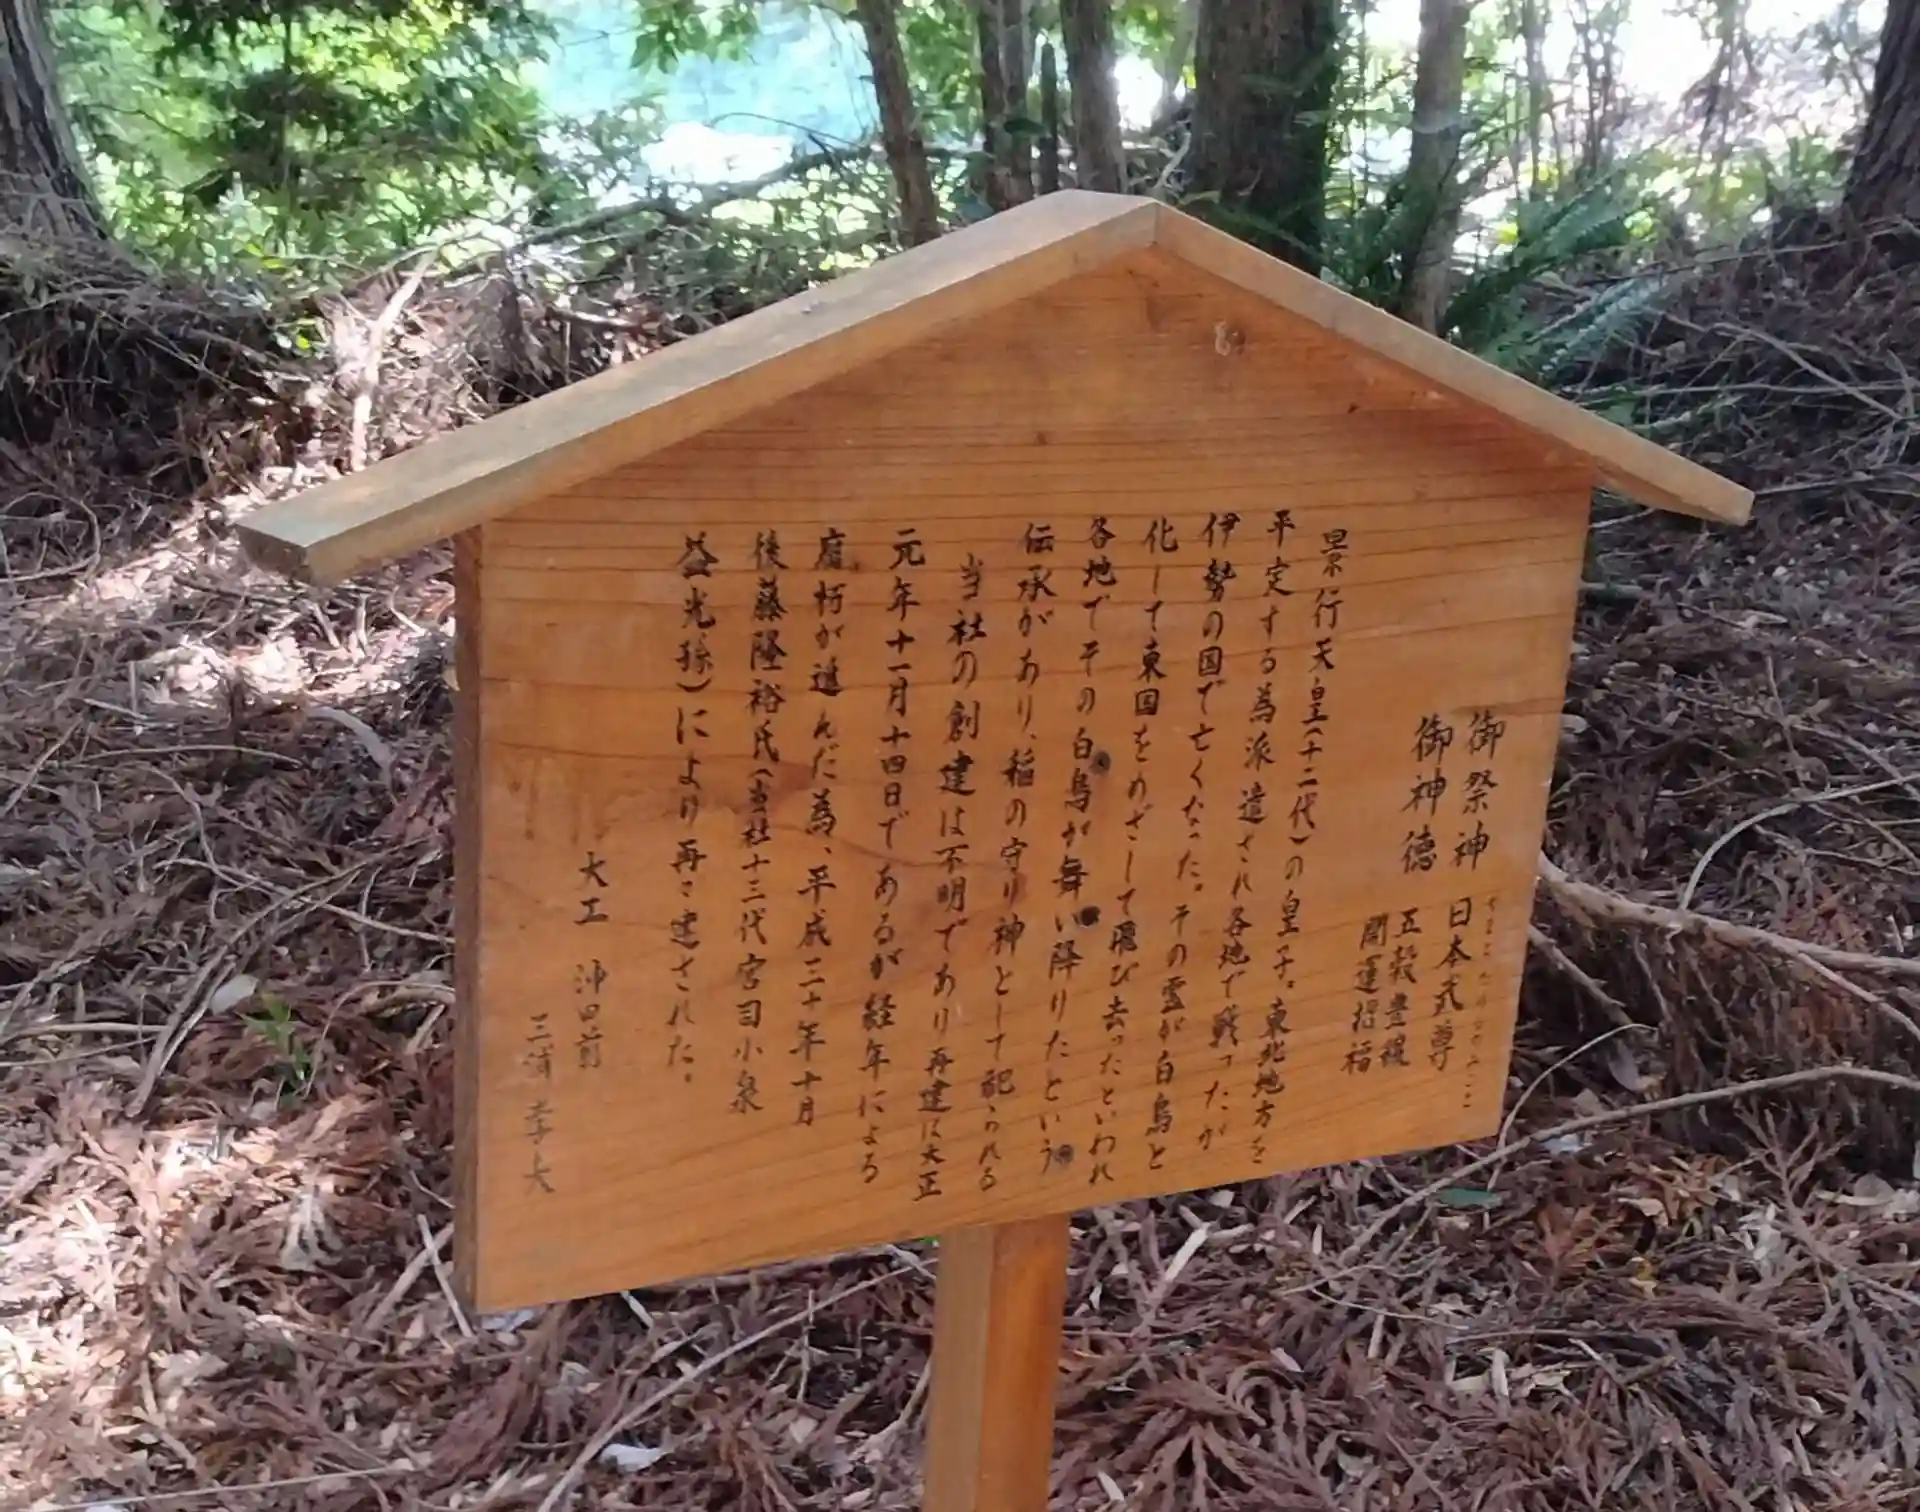 御祭神 日本武尊
やまとたけるのみこと
御神徳 五穀豊穣
開運招福
景行天皇(十二代)の皇子。東北地方を
平定する為派遣され各地で戦ったが
伊勢の国で亡くなった。その霊が白鳥と
化して東国をめざして飛び去ったといわれ
各地でその白鳥が舞い降りたという
伝承があり、稲の守り神として祀られる
当社の創建は不明であり再建は大正
元年十一月十四日であるが経年による
腐朽が進んだ為、平成三十年十月
後藤隆裕氏(当社十三代宮司小泉
益光孫)により再び建された。
大工 沖田前
三浦 幸大